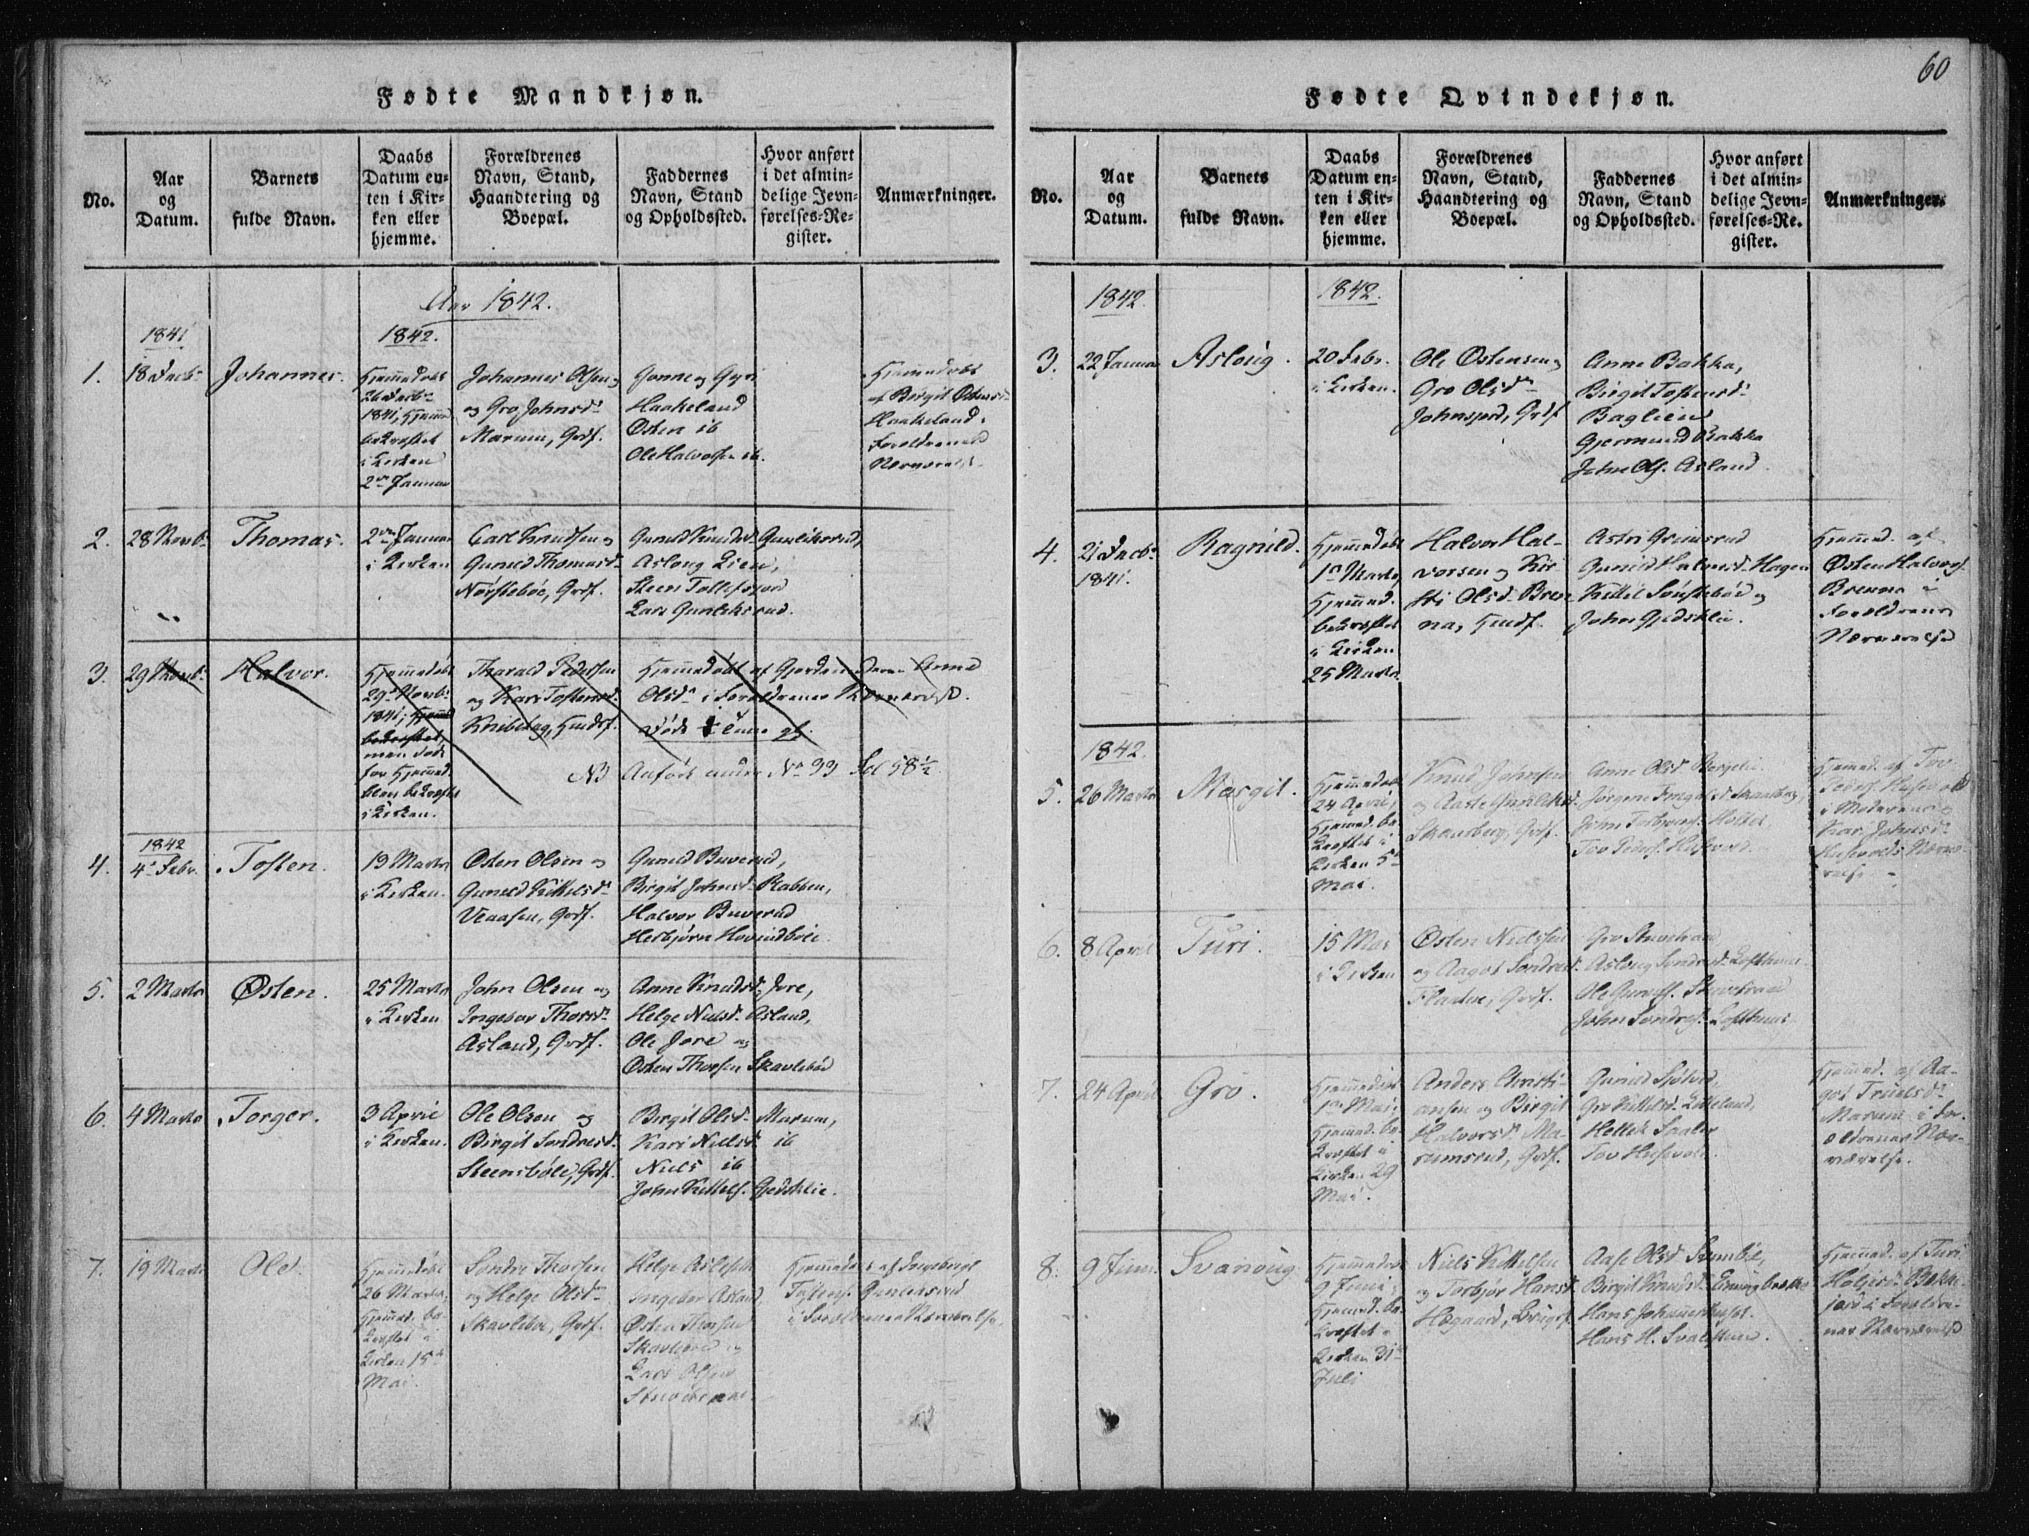 60
Fødte Mandkjøn.
No.
Aar
og
Datum.
Barnets
fulde Navn.
Daabs
Datum en-
ten i Kir-
ken eller
hjemme.
Forældrenes
Navn, Stand,
Haandtering og
Boepæl.
Faddernes
Navn, Stand
og Opholdssted.
Hvor anført
i det almin-
delige Jevn-
førelses-Re-
gister.
Anmærkninger.
Aar 1842.
1841
1842.
1.
18 Decbr
Johannes.
Hjemmedøbt
26 Decbr
1841, Hjemmed.
bekræftet
i Kirken
2den Januar
Johannes Olsen
og Gro Johnsdr
Marum, Grdf.
Gonne og Gyri
Haakeland
Østen ib
Ole Halvorsen ib.
Hjemmedøbt
af Birgit Østensd
Haakeland i
Forældrenes
Nærværelse.
2.
28 Novbr
Thomas.
2den Januar
i Kirken
Carl Knudsen og
Guneld Thomasdr
Nørstebøe, Grdf.
Guneld Knudsd. Gunliksrud,
Asloug Lien,
Steen Tollefsjord
Lars Gunleksrud.
3.
29 Novbr.
Halvor.
Hjemmedøbt
29 Novbr
1841, Hjemmed
bekræftet,
men døde
før Hjemmed.
blev bekræftet
i Kirken.
Tharald Pedersen
og Kari Tostensd.
Knibetag, Huusf.
Hjemmedøbt af Gjordemoderen Anne
Olsdr i Forældrenes Nærværelse.
NB Anført under No 33 Fol 58½
4.
1842
4de Febr.
Tosten.
13 Marts
i Kirken.
Østen Olsen og
Guneld Kittelsdr
Vraasen, Grdf.
Guneld Buverud,
Birgit Johnsd. Rabben,
Halvor Buverud
Herbjørn Hovindbøle.
5.
2 Marts
Østen.
25 Marts
i Kirken
John Olsen og
Ingebor Thorsdr
Aasland, Grdf.
Anne Knudsd. Jore,
Helge Nielsd. Asland,
Ole Jore og
Østen Thorsen Skavlebøe
6.
4 Marts
Torger.
3 April
i Kirken.
Ole Olsen og
Birgit Sondresd.
Steensbøle, Grdf.
Birgit Olsd. Marum,
Kari Nielsd. ib
Niels ib
John Kittels. Gjedsklie.
7.
19 Marts
Ole.
Hjemmedøbt
26 Marts,
Hjemmed. be-
kræftet i
Kirken 15de
Mai.
Sondre Thorsen
og Helge Olsdr
Skavlebøe, Grdf.
Helge Aslesen
Ingebor Asland,
Østen Thorsen
Skavlebøe og
Lars Olsen
Hjemmedøbt af Ingebrigt
Tostens. Gunleksrud
i Forældrenes Nærværelse.
Fødte Qvindekjøn.
No.
Aar
og
Datum.
Barnets
fulde Navn.
Daabs
Datum en-
ten i Kir-
ken eller
hjemme.
Forældrenes
Navn, Stand,
Haandtering og
Boepæl.
Faddernes
Navn, Stand
og Opholdssted.
Hvor anført
i det almin-
delige Jevn-
førelses-Re-
gister.
Anmærkninger.
1842
1842.
3.
22 Januar
Asloug.
20 Febr.
i Kirken.
Ole Østensen og
Gro Olsdr
Johnsjord, Grdf
Anne Bakka,
Birgit Tostensdr
Baglien
Gjermund Bakka
John Ols. Asland.
4.
21 Decbr
1841.
Ragnild.
Hjemmedøbt
1ste Marts
Hjemmed.
bekræftet
i Kirken
25 Marts.
Halvor Hal-
vorsen og Kir-
sti Olsd. Bren-
na, Huusf.
Astri Grimsrud
Guneld Halvorsd. Hagen
Kittil Sønstebøe og
John Gjedsklie.
Hjemmed. af
Østen Halvors.
Brenna i
Forældrenes
Nærværelse
1842.
5.
26 Marts
Margit.
Hjemmedøbt
24 April,
Hjemmed. be-
kræftet i
Kirken 5te
Mai.
Knud Johnsen
og Aaste Gunleksd.
Skarsberg, Grdf.
Anne Olsd. Bergelie
Jørgene Fregolsd. Skarsberg,
John Torbjørns. Holtet,
Tov Peders. Husevold.
Hjemmed. af Tov
Peders. Husevold
i Moderens og
Kari Johnsdr
Husevolds Nærvæ-
relse.
6.
8 April
Turi.
15 Mai
i Kirken
Østen Nielsen
og Aagot Sondresd.
Flaaten, Grdf.
Aslong Sondresd. Lofthuus
Ole Gunlfs. Skavekraae
John Sondres. Lofthuus.
7.
24 April
Gro.
Hjemmedøbt
1ste Mai,
Hjemmed. be-
kræftet i
Kirken 29
Mai.
Anders Christi-
ansen og Birgit
Halvorsd. Ma-
rumsrud, Grdf.
Guneld Sjøtved,
Gro Kittelsd. Kitteland,
Hellik Saaler
Tov Husevold.
Hjemmed. af Aa-
got Truelsdr
Marum i For-
ældrenes Nær-
værelse.
8.
9 Juni.
Svanoug.
Hjemmedøbt
9 Juni,
Hjemmed. be-
kræftet i
Kirken 31te
Juli
Niels Kittelsen
og Torbjør Hansd.
Høgaard, Brugsf.
Aase Olsd.
Birgit Knudsd.
Hans Johannes
Hans H. Svalestuen.
Hjemmed. af Turi
Holjesdr Bakke-
jord i Forældre-
nes Nærværelse